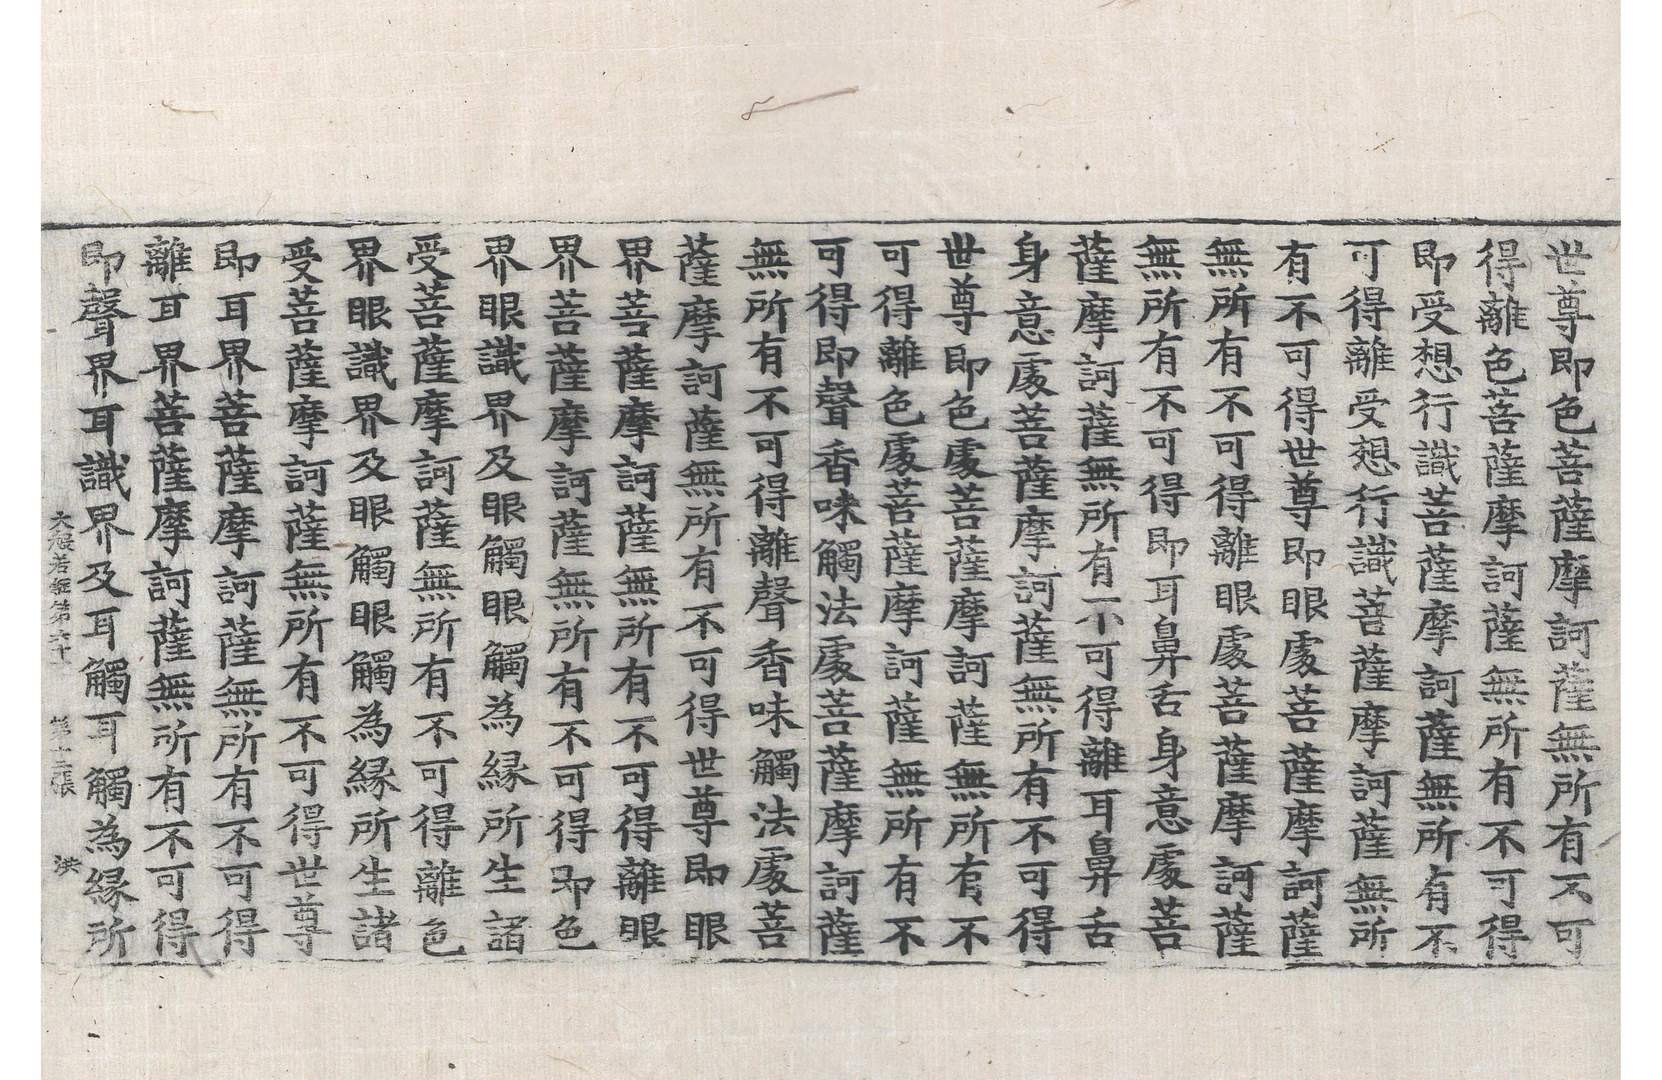 世尊即色菩薩摩訶薩無所有不可
得離色菩薩摩訶薩無所有不可得
即受想行識菩薩摩訶薩無所有不
可得離受想行識菩薩摩訶薩無所
有不可得世尊即眼處菩薩摩訶薩
無所有不可得離眼處菩薩摩訶薩
無所有不可得即耳鼻舌身意處菩
薩摩訶薩無所有不可得離耳鼻舌
身意處菩薩摩訶薩無所有不可得
世尊即色處菩薩摩訶薩無所有不
可得離色處菩薩摩訶薩無所有不
可得即聲香味觸法處菩薩摩訶薩
無所有不可得離聲香味觸法處菩
薩摩訶薩無所有不可得世尊即眼
界菩薩摩訶薩無所有不可得離眼
界菩薩摩訶薩無所有不可得即色
界眼識界及眼觸眼觸為緣所生諸
受菩薩摩訶薩無所有不可得離色
界眼識界及眼觸眼觸為緣所生諸
受菩薩摩訶薩無所有不可得世尊
即耳界菩薩摩訶薩無所有不可得
離耳界菩薩摩訶薩無所有不可得
即聲界耳識界及耳觸耳觸為緣所
大般若經第六十 張 洪